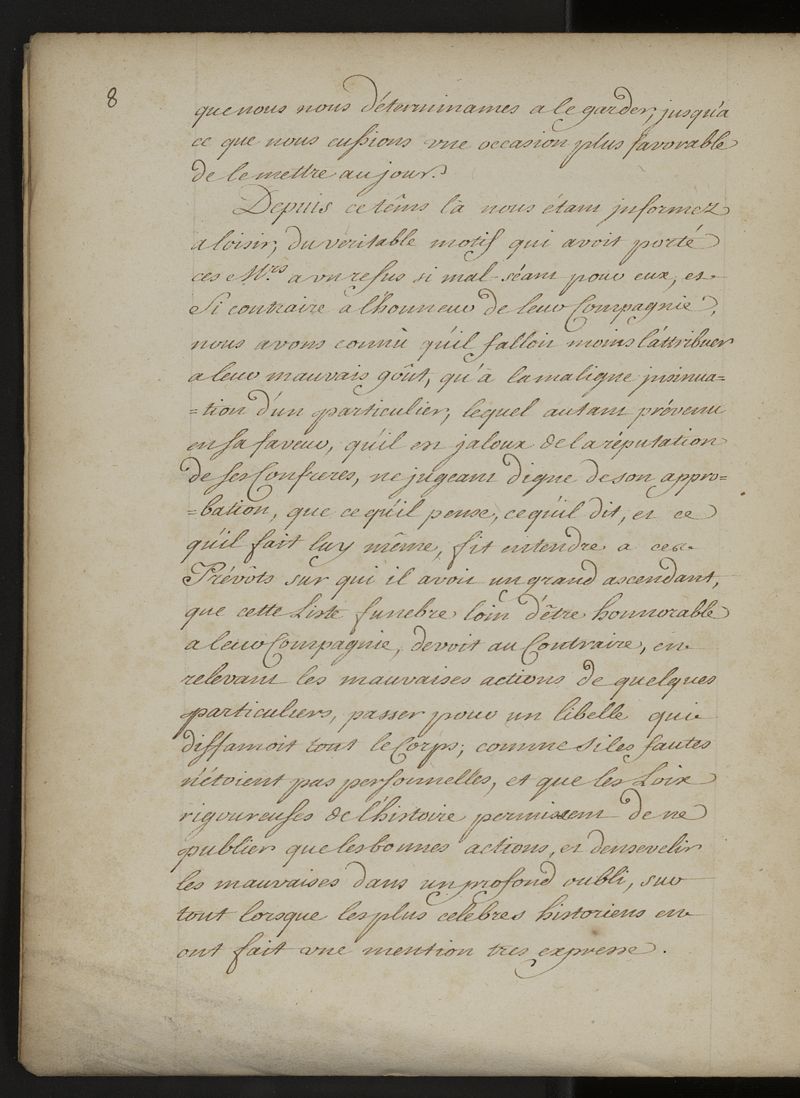 8
que nous nous déterminames a le garder, jusqu'a
ce que nous eussions vne occasion plus favorable
de le mettre au jour.
Depuis ce têms là nous étant jnformez
a loisir, du veritable motif qui avoit porté
ces Mrs a vn refus si mal-séant pour eux, et
si contraire a l'honneur de leur Compagnie,
nous avons connû qu'il falloit moins l'attribuer
a leur mauvais goût, qu'à la maligne jnsinua=
=tion d'un particulier, lequel autant prévenu
en sa faveur, qu'il est jaloux de la réputation
de ses Confreres, ne jugeant digne de son appro=
=bation, que ce qu'il pense, ce qu'il dit, et ce
qu'il fait luy même, fit entendre a ces
Prévôts sur qui il avoit un grand ascendant,
que cette Liste funebre loin d'être honnorable
a leur Compagnie, devoit au Contraire, en
relevant les mauvaises actions de quelques
particuliers, passer pour un libelle qui
diffamoit tout le Corps; comme si les fautes
n'étoient pas personnelles, et que les Loix
rigoureuses de l'histoire permissent de ne
publier que les bonnes actions, et d'ensevelir
les mauvaises dans un profond oubli, sur
tout lorsque les plus celebres historiens en
ont fait vne mention tres expresse.